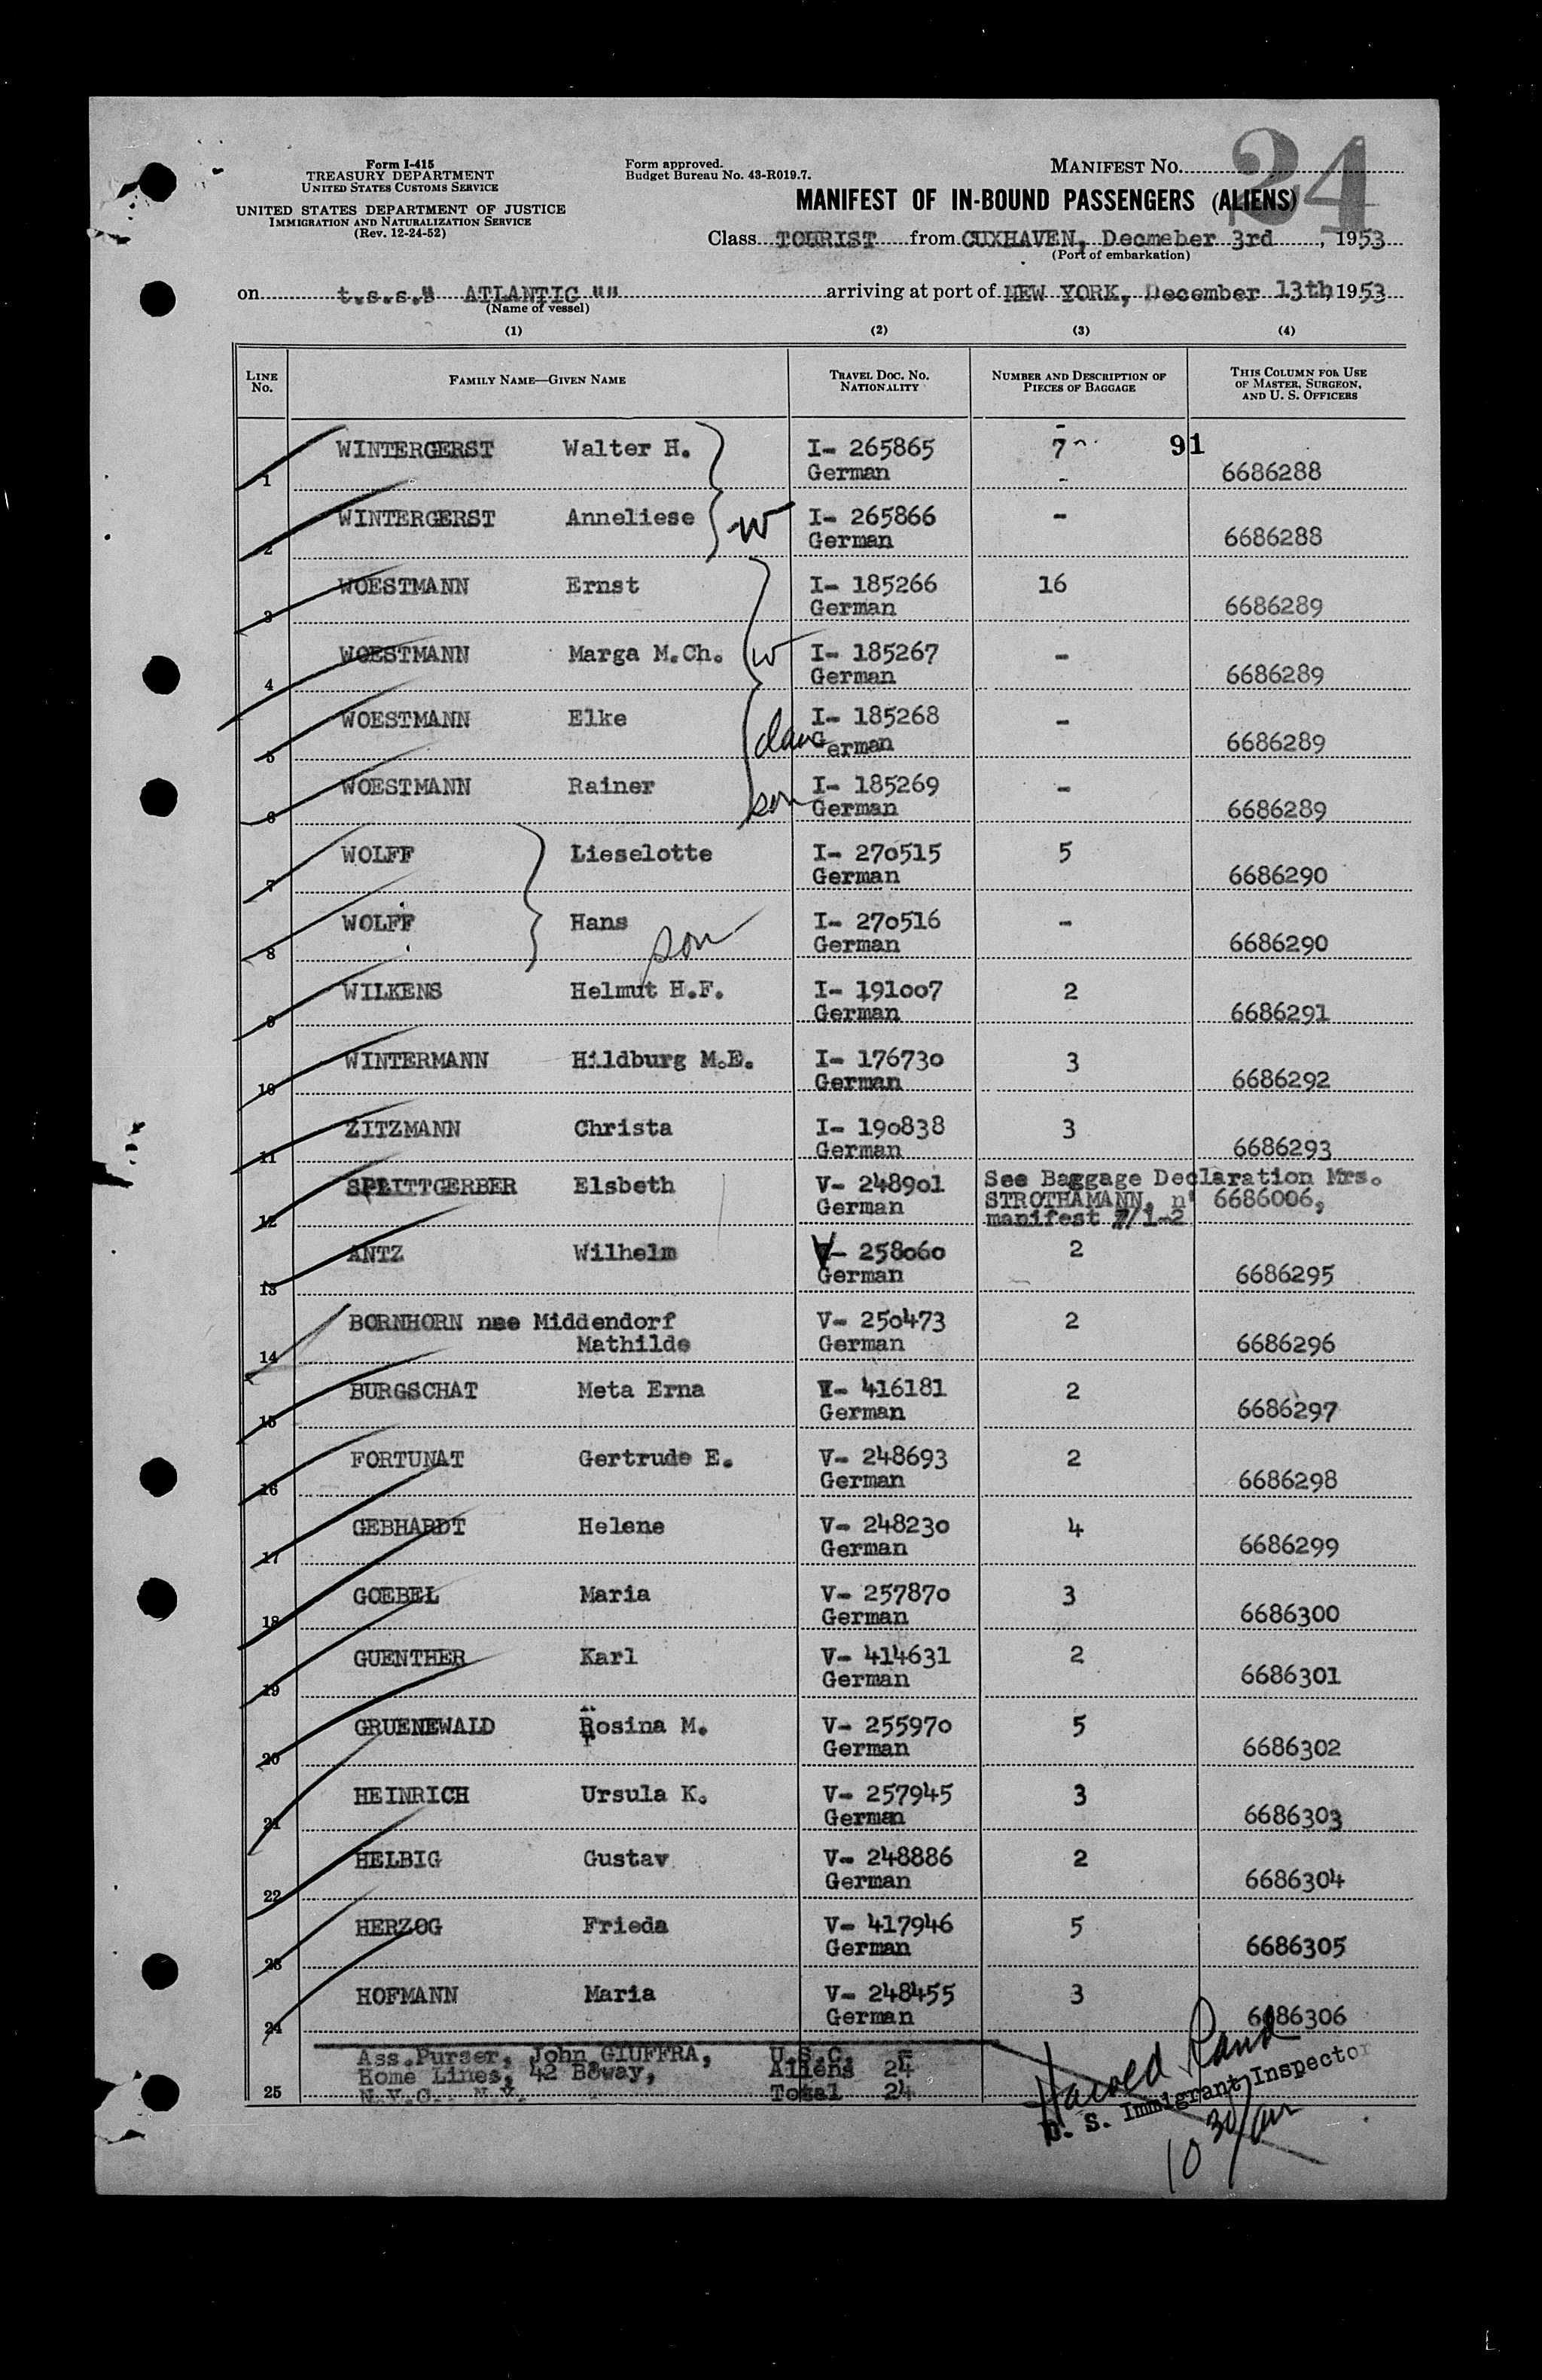 24
Form I-415
TREASURY DEPARTMENT
UNITED STATES CUSTOMS SERVICE
UNITED STATES DEPARTMENT OF JUSTICE
IMMIGRATION AND NATURALIZATION SERVICE
(Rev. 12-24-52)
Form approved.
Budget Bureau No. 43-R019.7.
MANIFEST NO.
MANIFEST OF IN-BOUND PASSENGERS (ALIENS)
Class TOURIST from CUXHAVEN, Decmeber 3rd, 1953
(Port of embarkation)
on t.s.s." ATLANTIC "" arriving at port of NEW YORK, December 13th, 1953
(Name of vessel)
(1) (2) (3) (4)
LINE NO. FAMILY NAME—GIVEN NAME TRAVEL DOC. NO. NATIONALITY NUMBER AND DESCRIPTION OF PIECES OF BAGGAGE THIS COLUMN FOR USE OF MASTER, SURGEON, AND U. S. OFFICERS
1 WINTERGERST Walter H. I- 265865 7 91
German 6686288
2 WINTERGERST Anneliese w I- 265866 -
German 6686288
3 WOESTMANN Ernst I- 185266 16
German 6686289
4 WOESTMANN Marga M.Ch. w I- 185267 -
German 6686289
5 WOESTMANN Elke dau I- 185268 -
German 6686289
6 WOESTMANN Rainer son I- 185269 -
German 6686289
7 WOLFF Lieselotte I- 270515 5
German 6686290
8 WOLFF Hans son I- 270516 -
German 6686290
9 WILKENS Helmut H.F. I- 191007 2
German 6686291
10 WINTERMANN Hildburg M.E. I- 176730 3
German 6686292
11 ZITZMANN Christa I- 190838 3
German 6686293
12 SPLITTGERBER Elsbeth V- 248901 See Baggage Declaration Mrs.
German STROTHAMANN, n° 6686006,
manifest 7/1-2
13 ANTZ Wilhelm V- 258060 2
German 6686295
14 BORNHORN nee Middendorf V- 250473 2
Mathilde German 6686296
15 BURGSCHAT Meta Erna V- 416181 2
German 6686297
16 FORTUNAT Gertrude E. V- 248693 2
German 6686298
17 GEBHARDT Helene V- 248230 4
German 6686299
18 GOEBEL Maria V- 257870 3
German 6686300
19 GUENTHER Karl V- 414631 2
German 6686301
20 GRUENEWALD Rosina M. V- 255970 5
German 6686302
21 HEINRICH Ursula K. V- 257945 3
German 6686303
22 HELBIG Gustav V- 248886 2
German 6686304
23 HERZOG Frieda V- 417946 5
German 6686305
24 HOFMANN Maria V- 248455 3
German 6686306
Ass.Purser, John GIUFFRA, U.S.C. -
Home Lines, 42 Bdway, Aliens 24
25 N.Y.C. N.Y. Total 24
Harold Rand
U. S. Immigrant Inspector
10 30/am